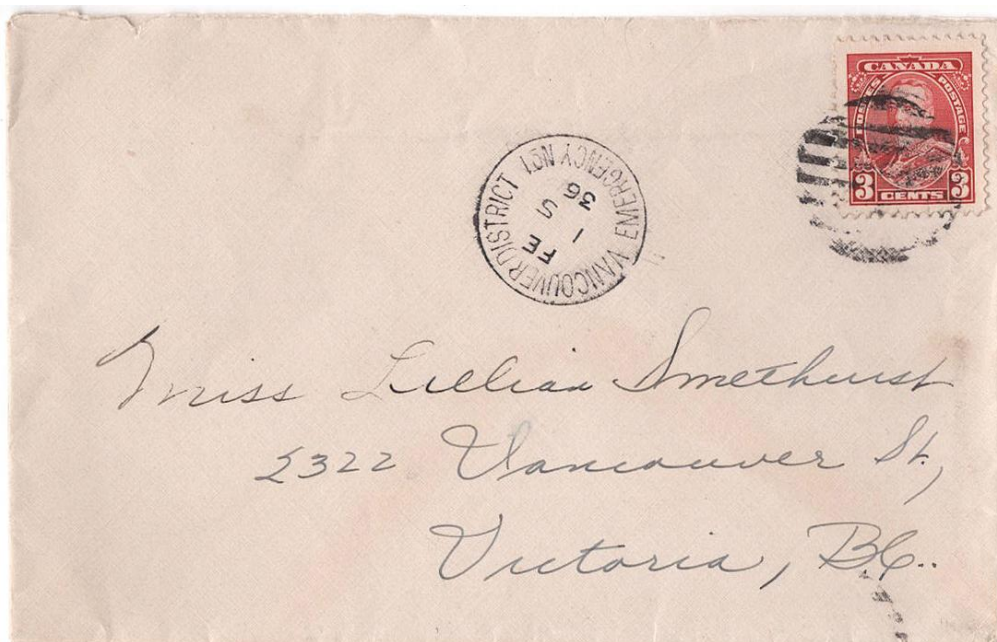 CANADA
POSTES POSTAGE
3 CENTS 3
VANCOUVER DISTRICT EMERGENCY No 1
FE
1
5
36
Miss Lillian Smethurst
2322 Vancouver St,
Victoria, BC.